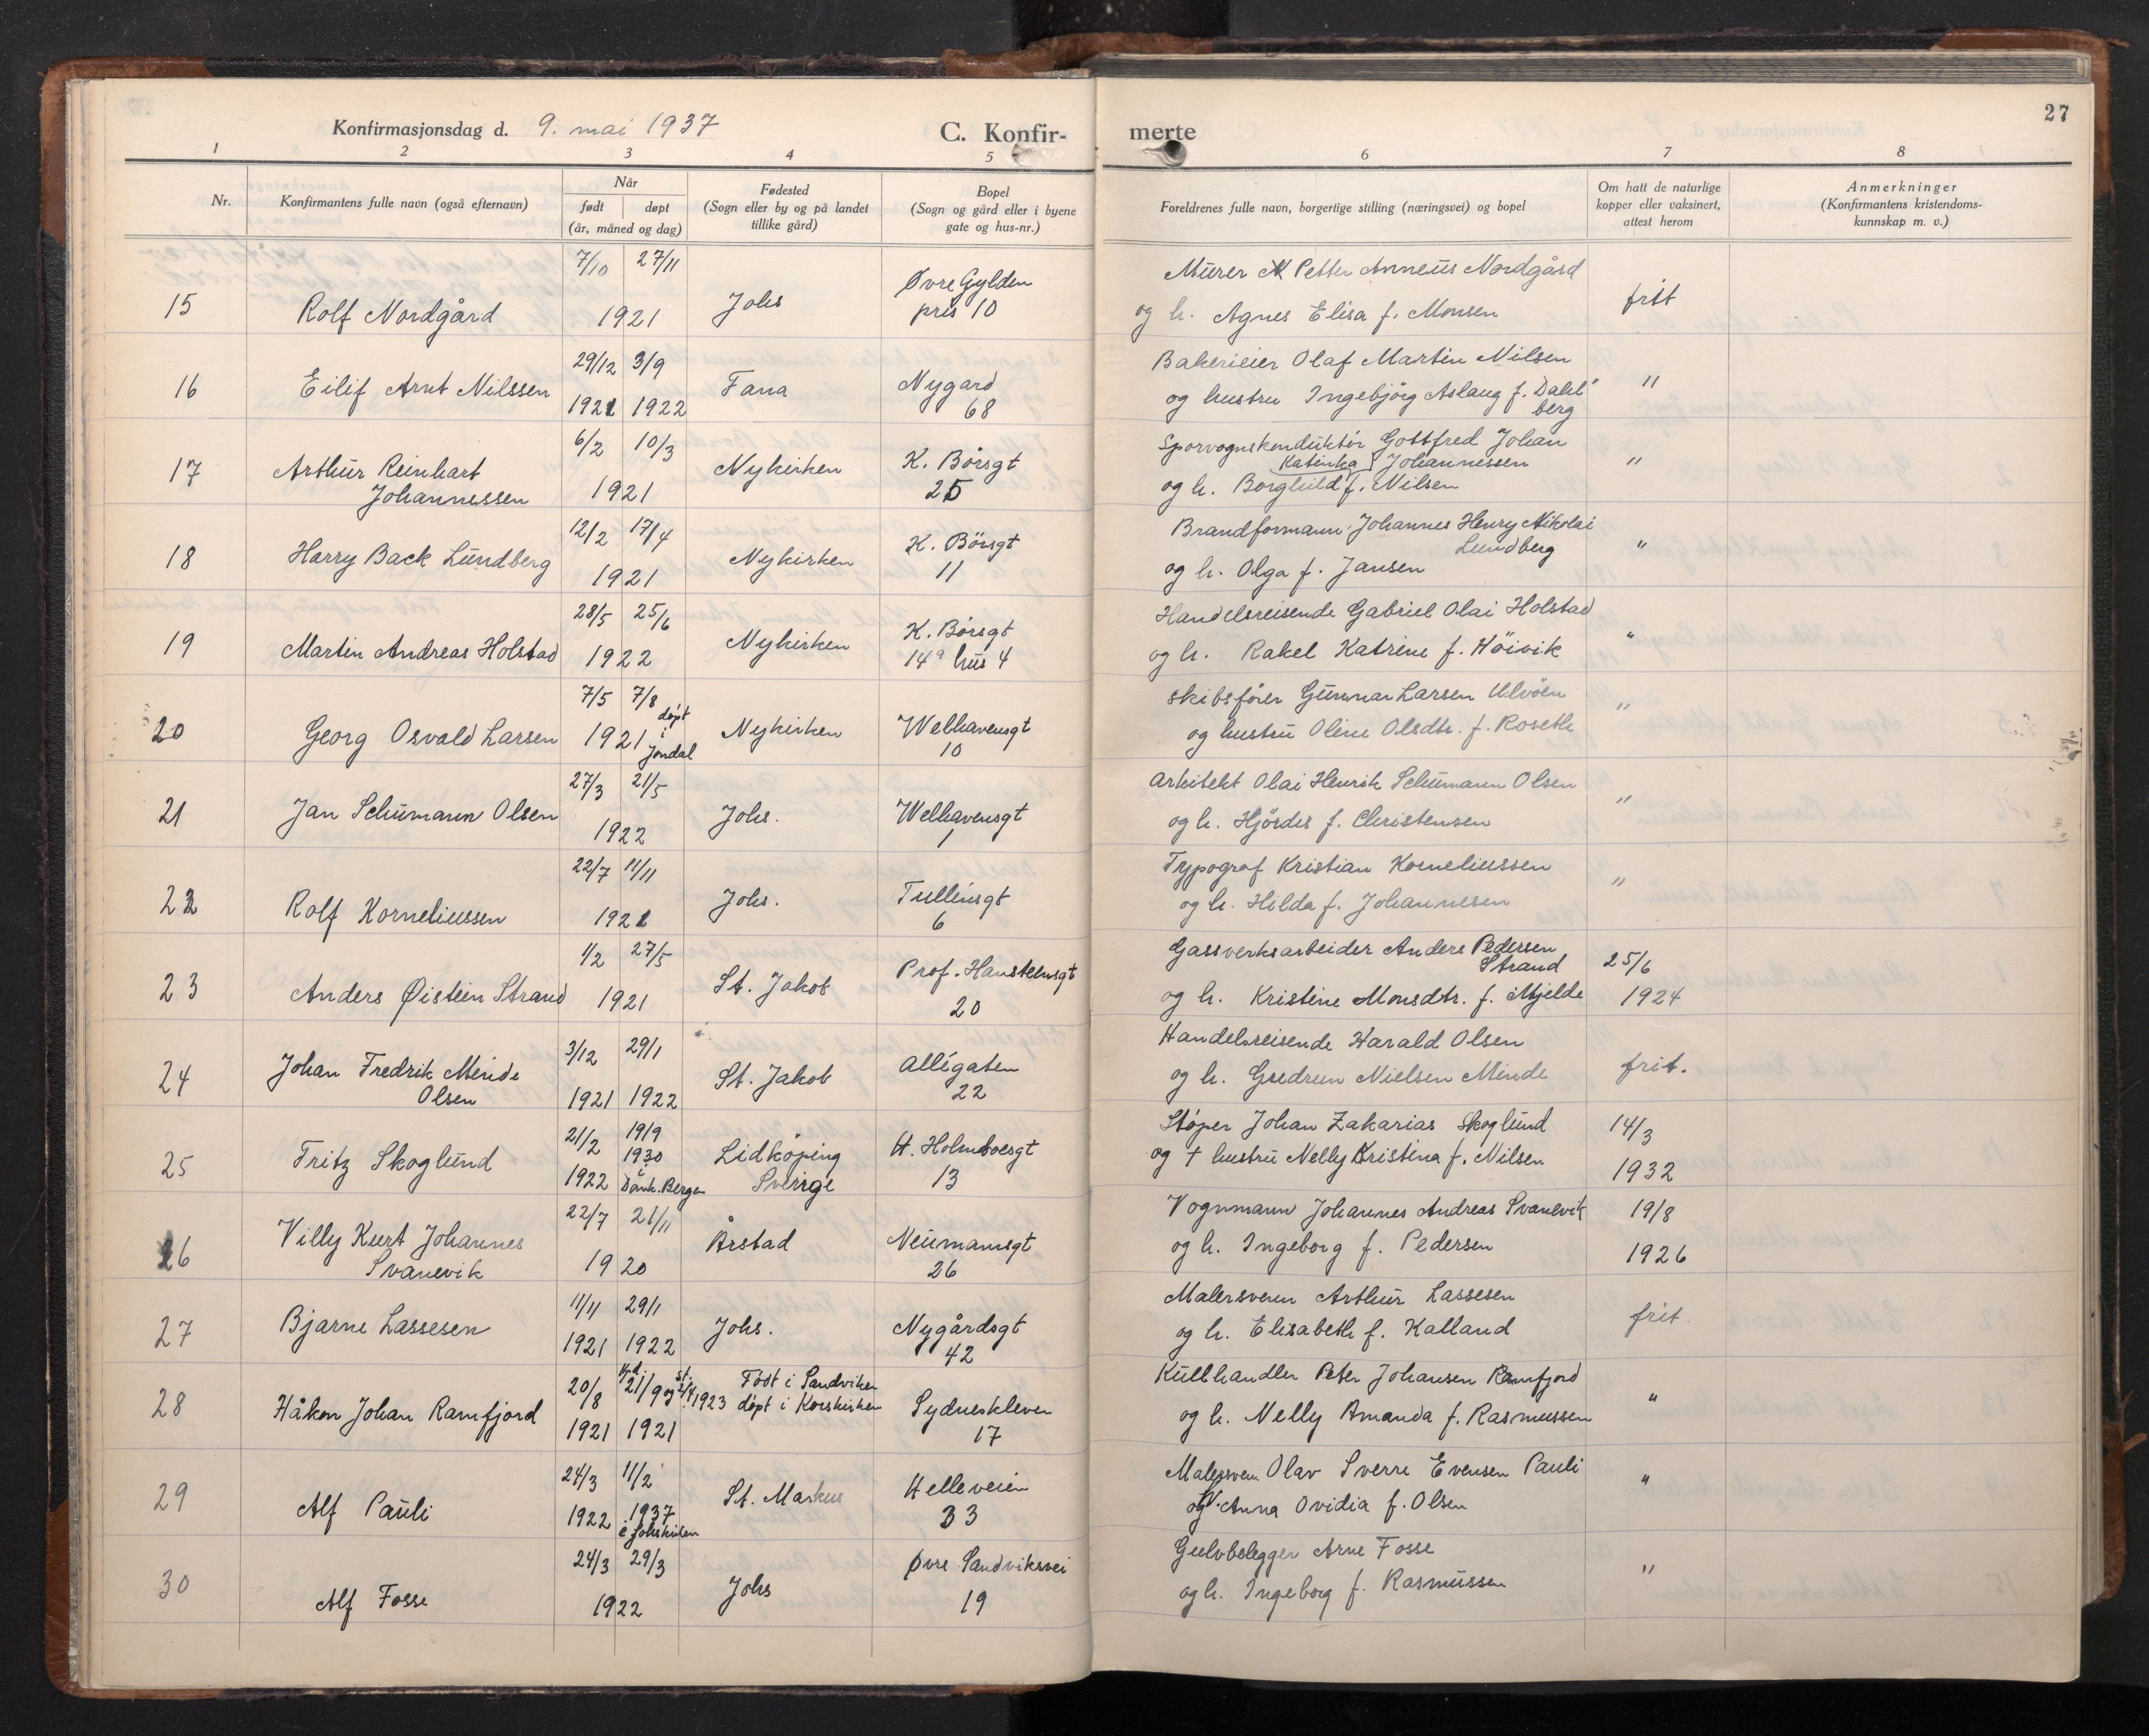 27
Konfirmasjonsdag d. 9. mai 1937
C. Konfir-
merte
1 2 3 4 5 6 7 8
Nr.
Konfirmantens fulle navn (også efternavn)
Når
født døpt
(år, måned og dag)
Fødested
(Sogn eller by og på landet
tillike gård)
Bopel
(Sogn og gård eller i byene
gate og hus-nr.)
Foreldrenes fulle navn, borgertige stilling (næringsvei) og bopel
Om hatt de naturlige
kopper eller vaksinert,
attest herom
Anmerkninger
(Konfirmantens kristendoms-
kunnskap m. v.)
7/10 27/11 Øvre Gylden Murer Petter Anneus Nordgård
15 Rolf Nordgård 1921 Johs pris 10 og h. Agnes Elisa f. Monsen frit
29/12 3/9 Bakerieier Olaf Martin Nilsen
16 Eilif Arnt Nilssen 1921 1922 Fana Nygard 68 og hustru Ingebjörg Aslaug f. Dahl- "
berg
6/2 10/3 Sporvognskonduktör Gottfred Johan
17 Arthur Reinhart Nykirken K. Börsgt Katinka Johannessen "
Johannessen 1921 25 og h. Borghild f. Nilsen
12/2 17/4 K. Börsgt Brandformann Johannes Henry Nikolai
18 Harry Back Lundberg Nykirken Lundberg "
1921 11 og h. Olga f. Jansen
28/5 25/6 K. Börsgt Handelsreisende Gabriel Olai Holstad
19 Martin Andreas Holstad 1922 Nykirken 14a hus 4 og h. Rakel Katrine f. Höivik "
7/5 7/8 døpt skibsförer Gunnar Larsen Ulvöen "
20 Georg Osvald Larsen 1921 i Nykirken Welhavensgt og hustru Oline Olsdtr. f. Roseth
Jondal 10
27/3 21/5 Arkitekt Olai Henrik Schumann Olsen
21 Jan Schumann Olsen 1922 Johs. Welhavensgt 1 og h. Hjördis f. Christensen "
22/7 11/11 Typograf Kristian Korneliussen
22 Rolf Korneliussen 1921 Johs. Tullinsgt 6 og h. Hilda f. Johannesen "
1/2 27/5 Prof. Hansteensgt Gassverksarbeider Anders Pedersen 25/6
Strand
23 Anders Øistein Strand 1921 St. Jakob 20 og h. Kristine Monsdtr. f. Mjelde 1924
3/12 29/1 Allégaten Handelsreisende Harald Olsen
24 Johan Fredrik Minde St. Jakob 22 og h. Gudrun Nielsen Minde frit.
Olsen 1921 1922
21/2 1919 Støper Johan Zakarias Skoglund 14/3
1930
25 Fritz Skoglund i Lidköping H. Holmboesgt og † hustru Nelly Kristina f. Nilsen
1922 Domk. Bergen Sverige 13 1932
22/7 21/11 Vognmann Johannes Andreas Svanevik 19/8
26 Villy Kurt Johannes Årstad Neumannsgt og h. Ingeborg f. Pedersen
Svanevik 1920 26 1926
11/11 29/1 Malersvenn Arthur Lassesen
27 Bjarne Lassesen 1921 1922 Johs. Nygårdsgt 42 og h. Elisabeth f. Kalland frit.
20/8 21/9 Født i Sandviken Kullhandler Peter Johansen Ramfjord
28 Håkon Johan Ramfjord 1923 døpt i Korskirken Sydneskleven "
1921 1921 17 og h. Nelly Amanda f. Rasmussen
24/3 11/2 Helleveien Malersvenn Olav Sverre Evensen Pauli
29 Alf Pauli 1922 1937 St. Markus 33 og h. Anna Ovidia f. Olsen "
i Johskirken
24/3 29/3 Øvre Sandviksvei Gulvbelegger Arne Fosse
30 Alf Fosse 1922 Johs 19 og h. Ingeborg f. Rasmussen "